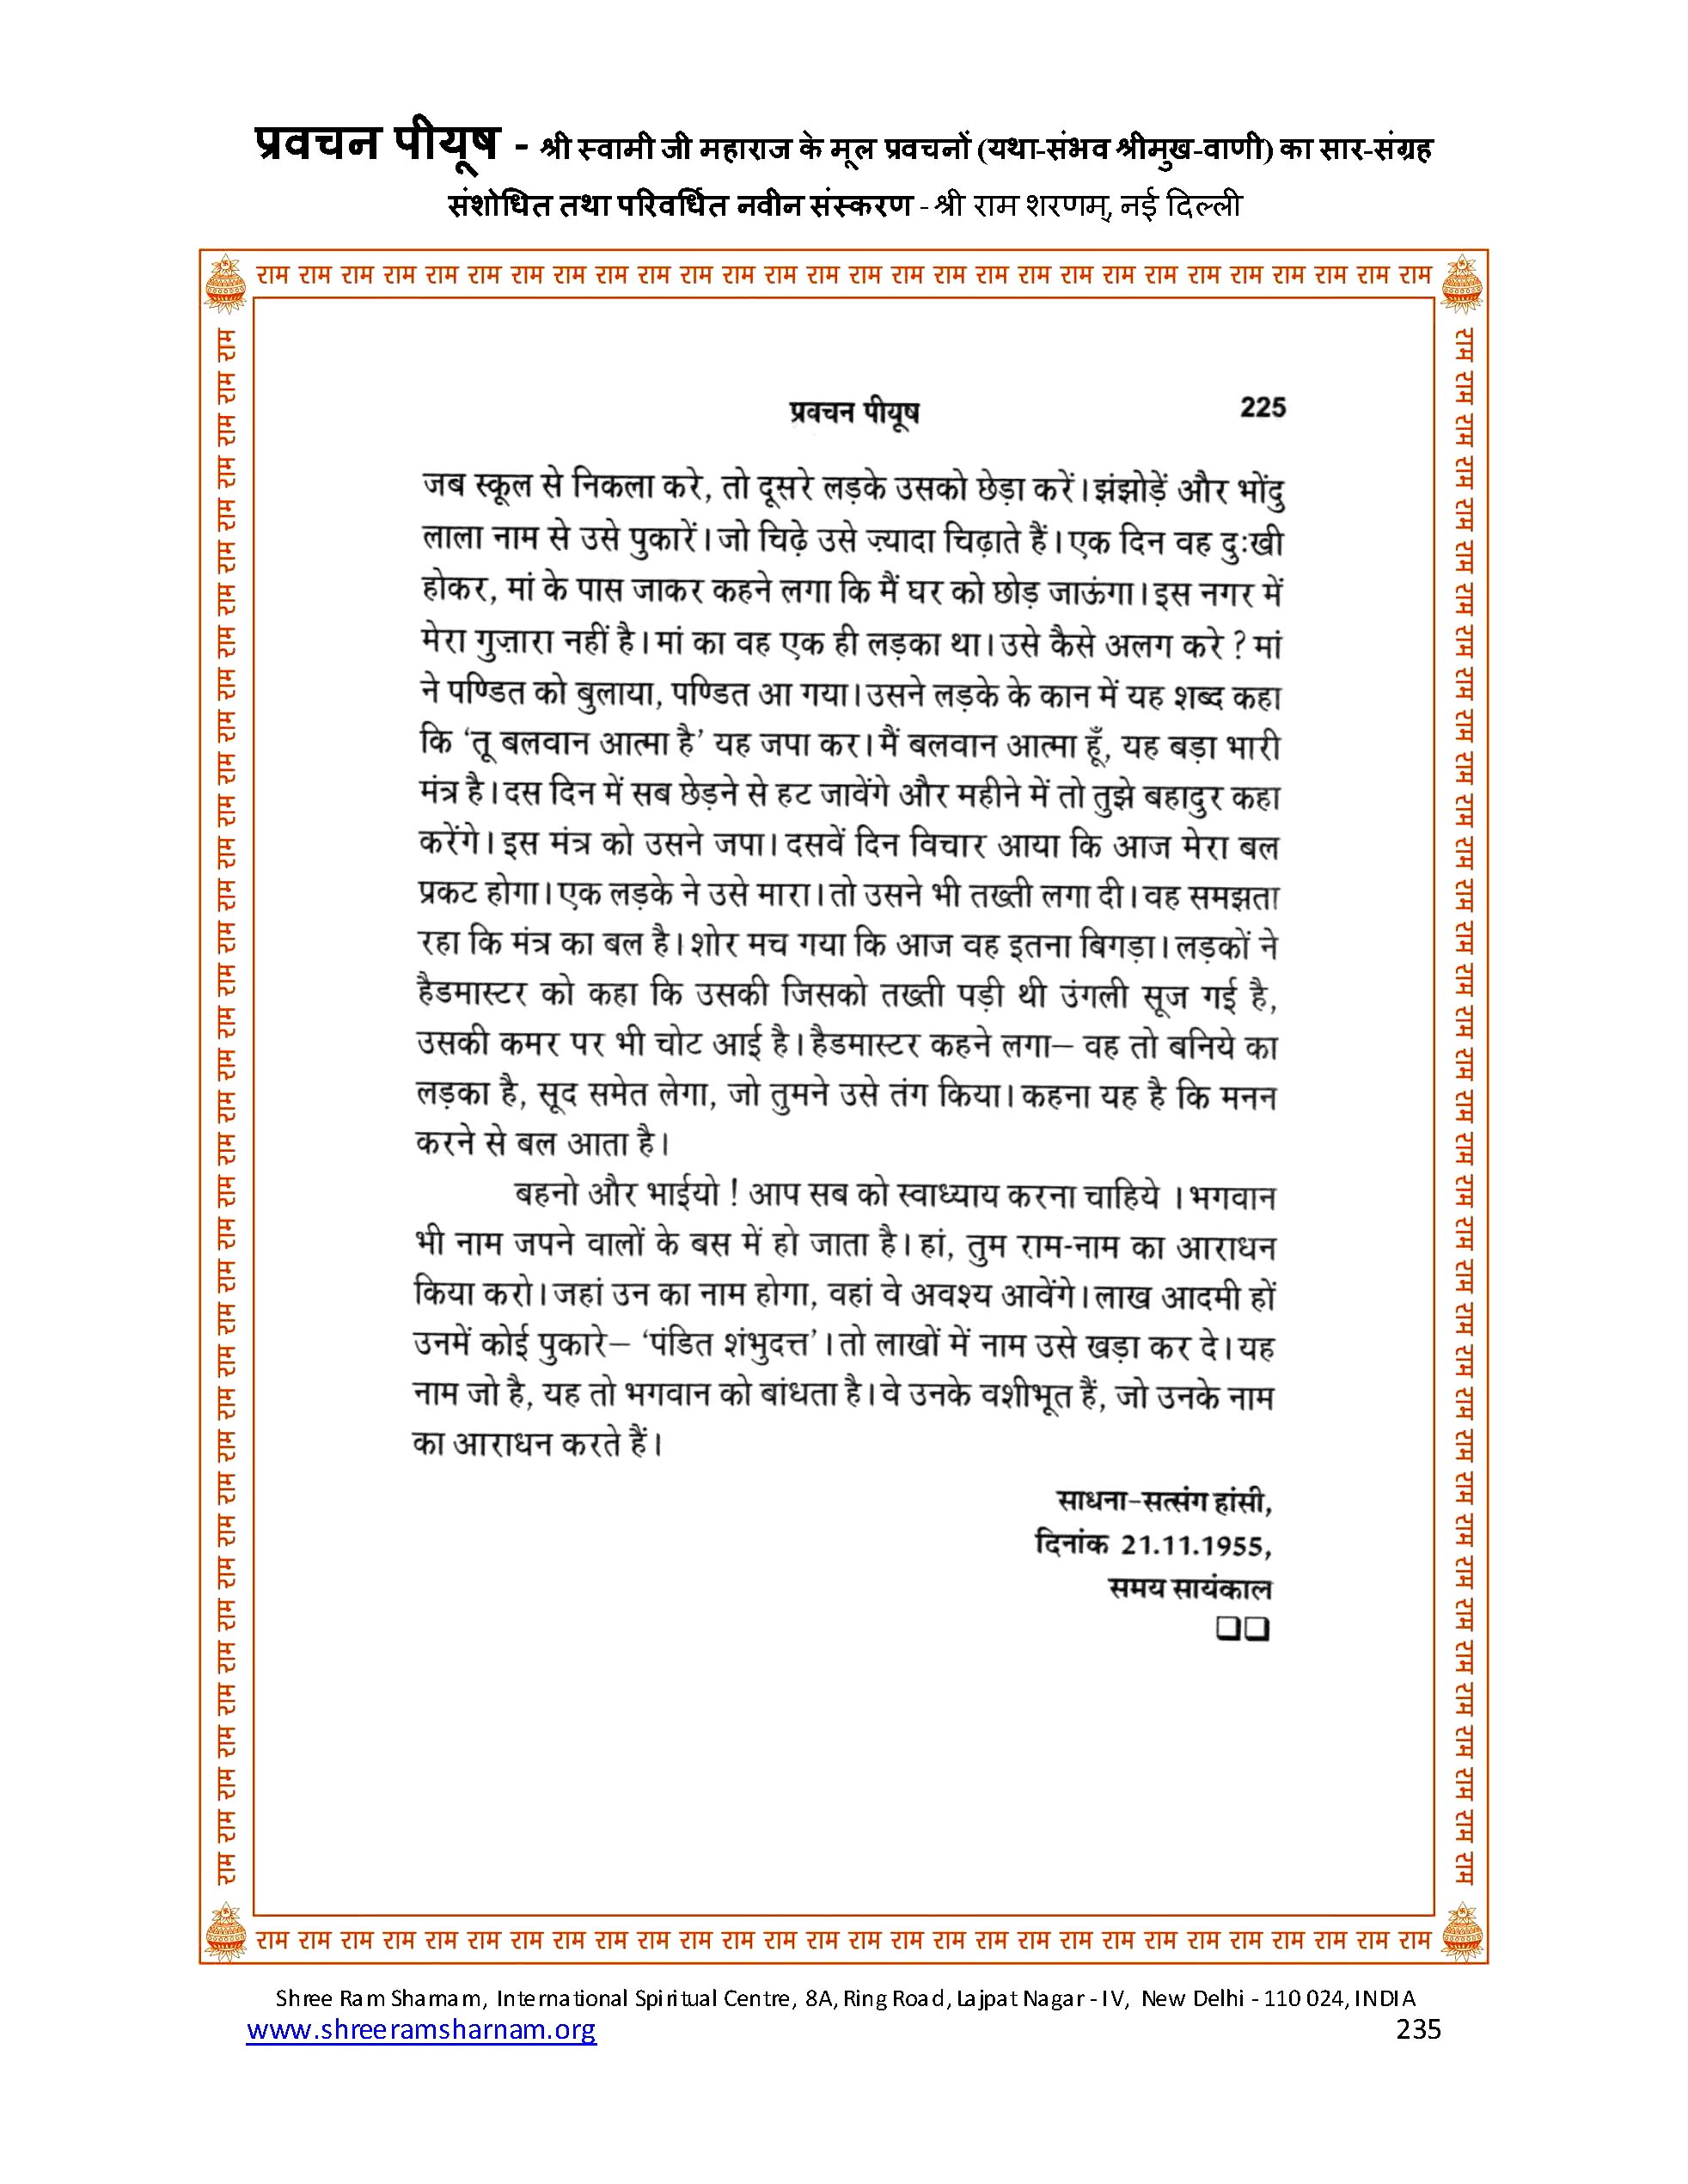 प्रवचन पीयूष - श्री स्वामी जी महाराज के मूल प्रवचनों (यथा-संभव श्रीमुख-वाणी) का सार-संग्रह
संशोधित तथा परिवर्धित नवीन संस्करण - श्री राम शरणम्, नई दिल्ली
राम राम राम राम राम राम राम राम राम राम राम राम राम राम राम राम राम राम राम राम राम राम राम राम राम राम राम राम
प्रवचन पीयूष 225
जब स्कूल से निकला करे, तो दूसरे लड़के उसको छेड़ा करें। झंझोड़ें और भोंदु
लाला नाम से उसे पुकारें। जो चिढ़े उसे ज़्यादा चिढ़ाते हैं। एक दिन वह दुःखी
होकर, मां के पास जाकर कहने लगा कि मैं घर को छोड़ जाऊंगा। इस नगर में
मेरा गुज़ारा नहीं है। मां का वह एक ही लड़का था। उसे कैसे अलग करे ? मां
ने पण्डित को बुलाया, पण्डित आ गया। उसने लड़के के कान में यह शब्द कहा
कि ‘तू बलवान आत्मा है’ यह जपा कर। मैं बलवान आत्मा हूँ, यह बड़ा भारी
मंत्र है। दस दिन में सब छेड़ने से हट जावेंगे और महीने में तो तुझे बहादुर कहा
करेंगे। इस मंत्र को उसने जपा। दसवें दिन विचार आया कि आज मेरा बल
प्रकट होगा। एक लड़के ने उसे मारा। तो उसने भी तख्ती लगा दी। वह समझता
रहा कि मंत्र का बल है। शोर मच गया कि आज वह इतना बिगड़ा। लड़कों ने
हैडमास्टर को कहा कि उसकी जिसको तख्ती पड़ी थी उंगली सूज गई है,
उसकी कमर पर भी चोट आई है। हैडमास्टर कहने लगा– वह तो बनिये का
लड़का है, सूद समेत लेगा, जो तुमने उसे तंग किया। कहना यह है कि मनन
करने से बल आता है।
बहनो और भाईयो ! आप सब को स्वाध्याय करना चाहिये । भगवान
भी नाम जपने वालों के बस में हो जाता है। हां, तुम राम-नाम का आराधन
किया करो। जहां उन का नाम होगा, वहां वे अवश्य आवेंगे। लाख आदमी हों
उनमें कोई पुकारे– ‘पंडित शंभुदत्त’। तो लाखों में नाम उसे खड़ा कर दे। यह
नाम जो है, यह तो भगवान को बांधता है। वे उनके वशीभूत हैं, जो उनके नाम
का आराधन करते हैं।
साधना-सत्संग हांसी,
दिनांक 21.11.1955,
समय सायंकाल
राम राम राम राम राम राम राम राम राम राम राम राम राम राम राम राम राम राम राम राम राम राम राम राम राम राम राम राम राम राम राम राम राम राम राम राम राम
राम राम राम राम राम राम राम राम राम राम राम राम राम राम राम राम राम राम राम राम राम राम राम राम राम राम राम राम राम राम राम राम राम राम राम राम राम
राम राम राम राम राम राम राम राम राम राम राम राम राम राम राम राम राम राम राम राम राम राम राम राम राम राम राम राम
Shree Ram Sharnam, International Spiritual Centre, 8A, Ring Road, Lajpat Nagar - IV, New Delhi - 110 024, INDIA
www.shreeramsharnam.org 235